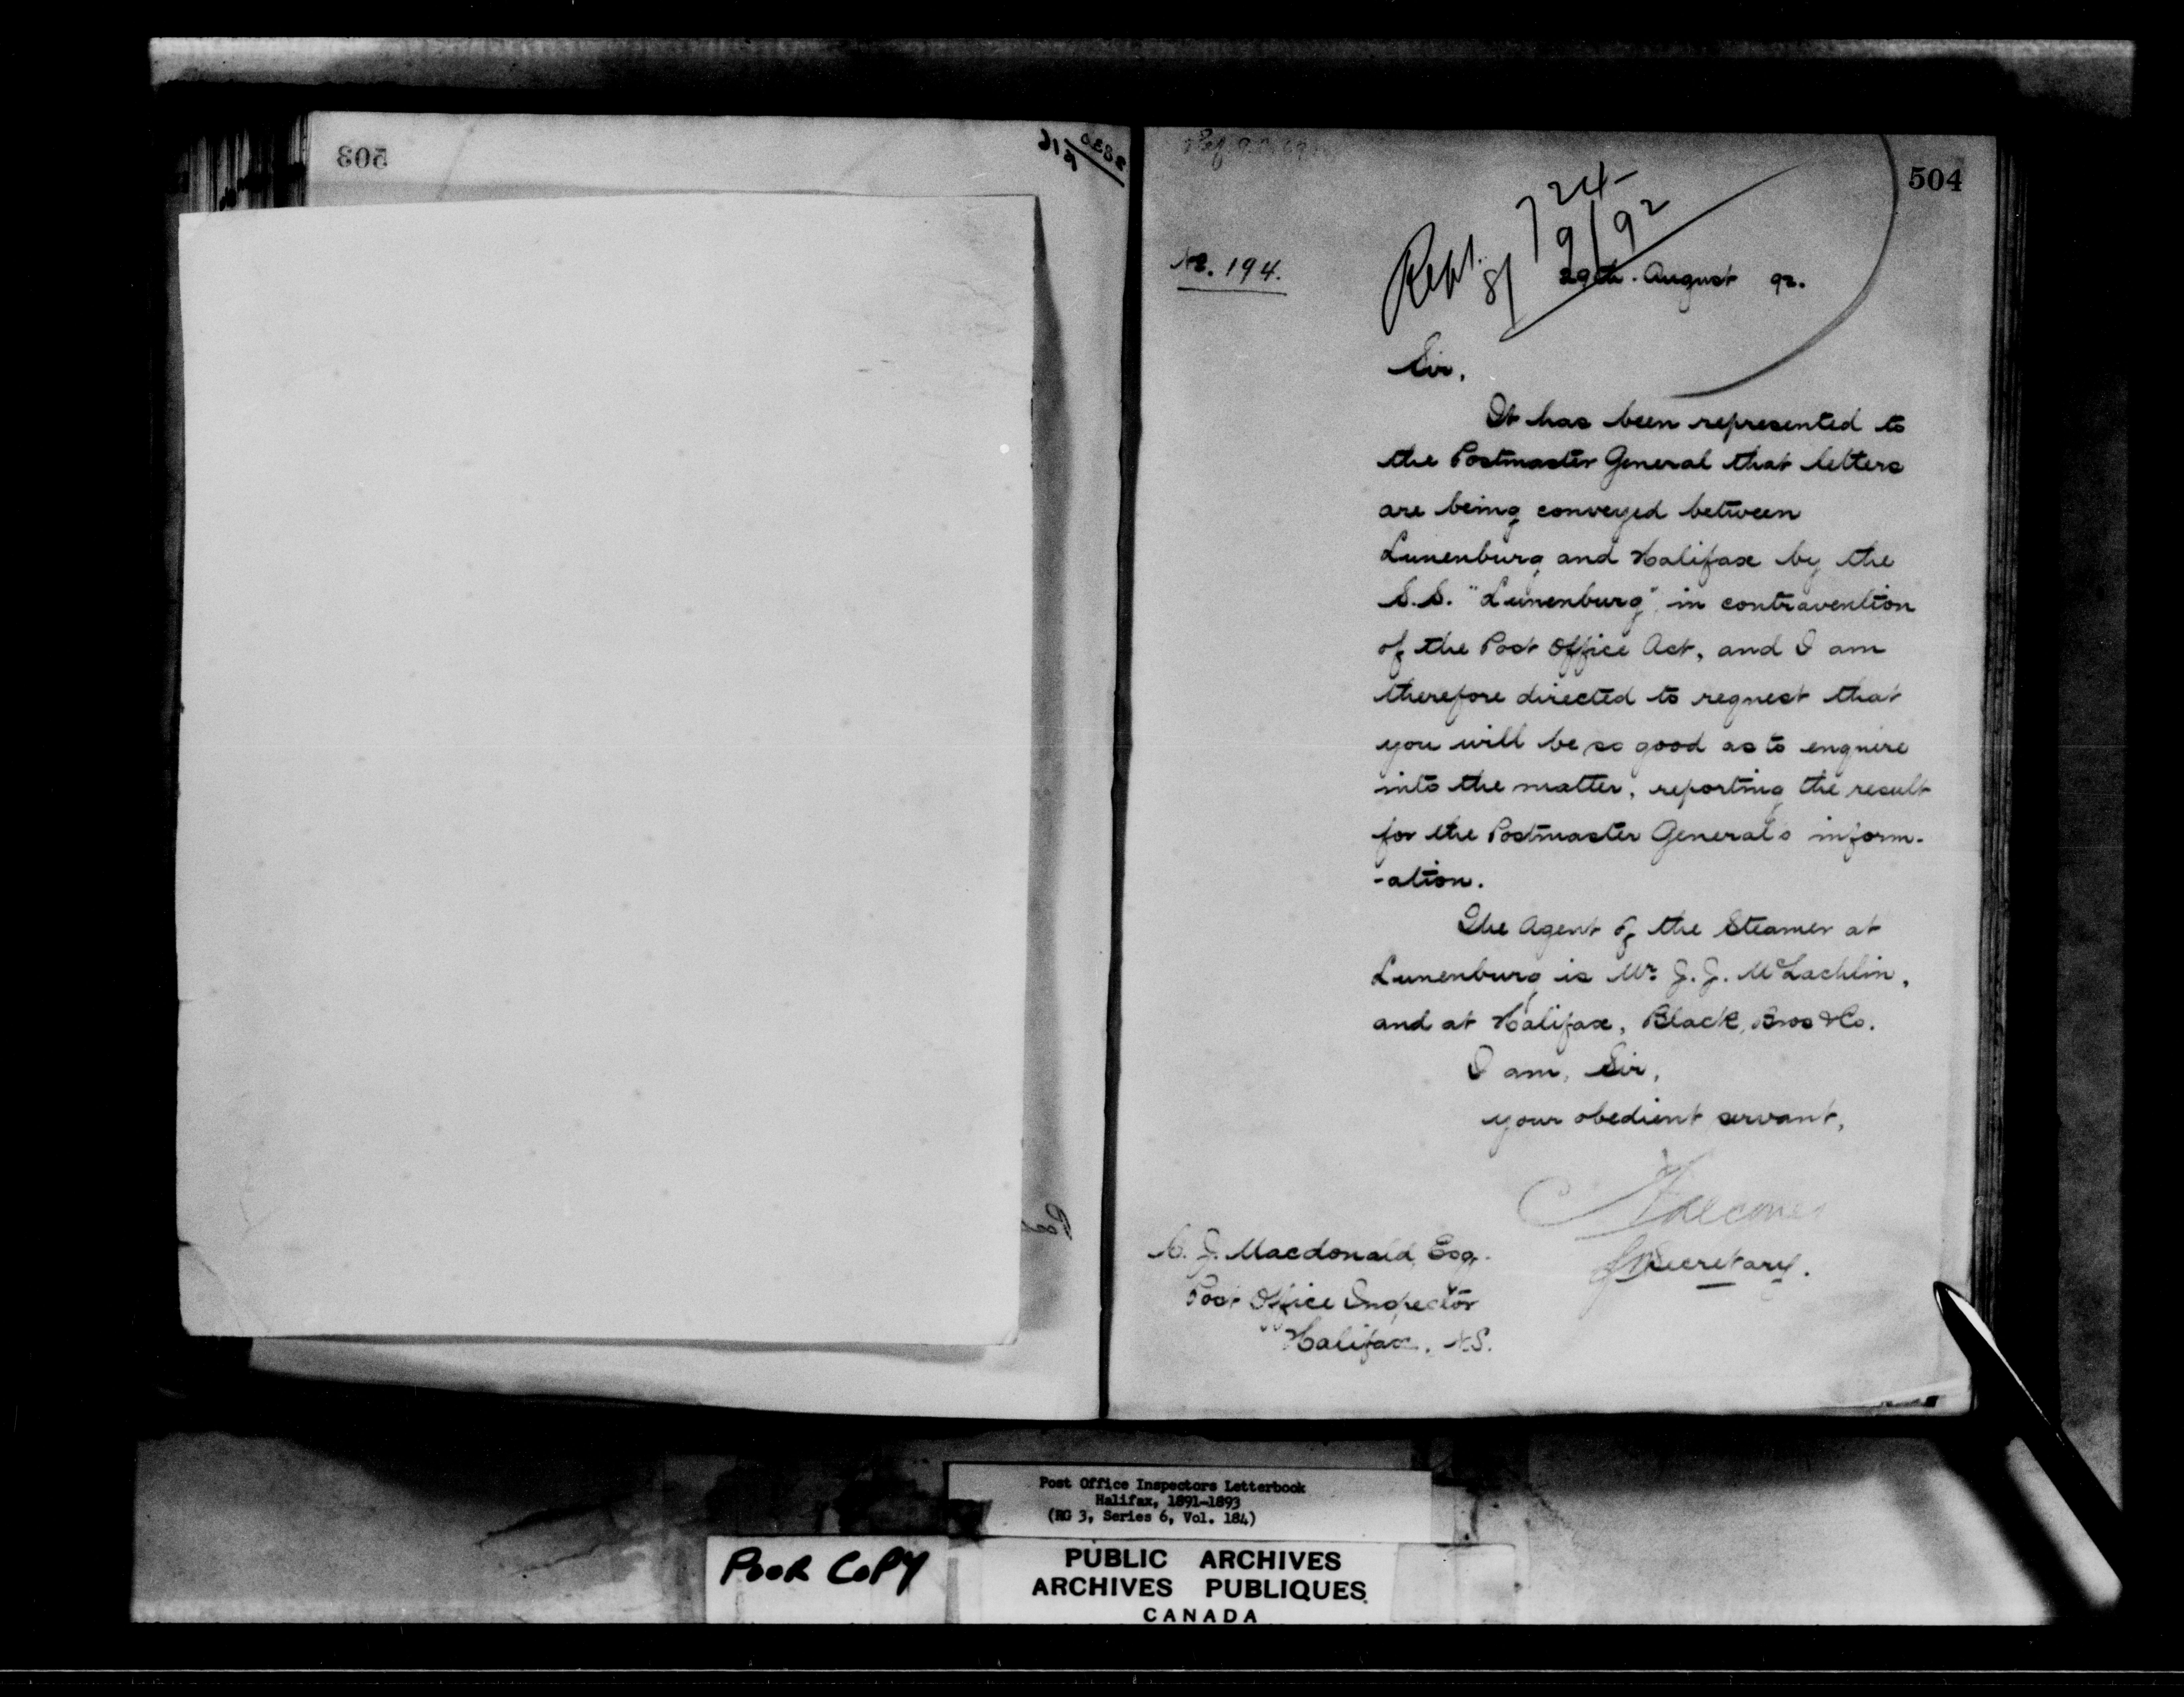 503
504
No. 194.
Rept. 724
8/9/92
29th. August 92.
Sir,
It has been represented to
the Postmaster General that letters
are being conveyed between
Lunenburg and Halifax by the
S.S. "Lunenburg", in contravention
of the Post Office Act, and I am
therefore directed to request that
you will be so good as to enquire
into the matter, reporting the result
for the Postmaster General's inform-
-ation.
The Agent of the Steamer at
Lunenburg is Mr. J. J. McLachlin,
and at Halifax, Black, Bros & Co.
I am, Sir,
your obedient servant,
Secretary.
J. Macdonald, Esq.
Post Office Inspector
Halifax. N.S.
Post Office Inspectors Letterbook
Halifax, 1891-1893
(RG 3, Series 6, Vol. 184)
POOR COPY
PUBLIC ARCHIVES
ARCHIVES PUBLIQUES
CANADA